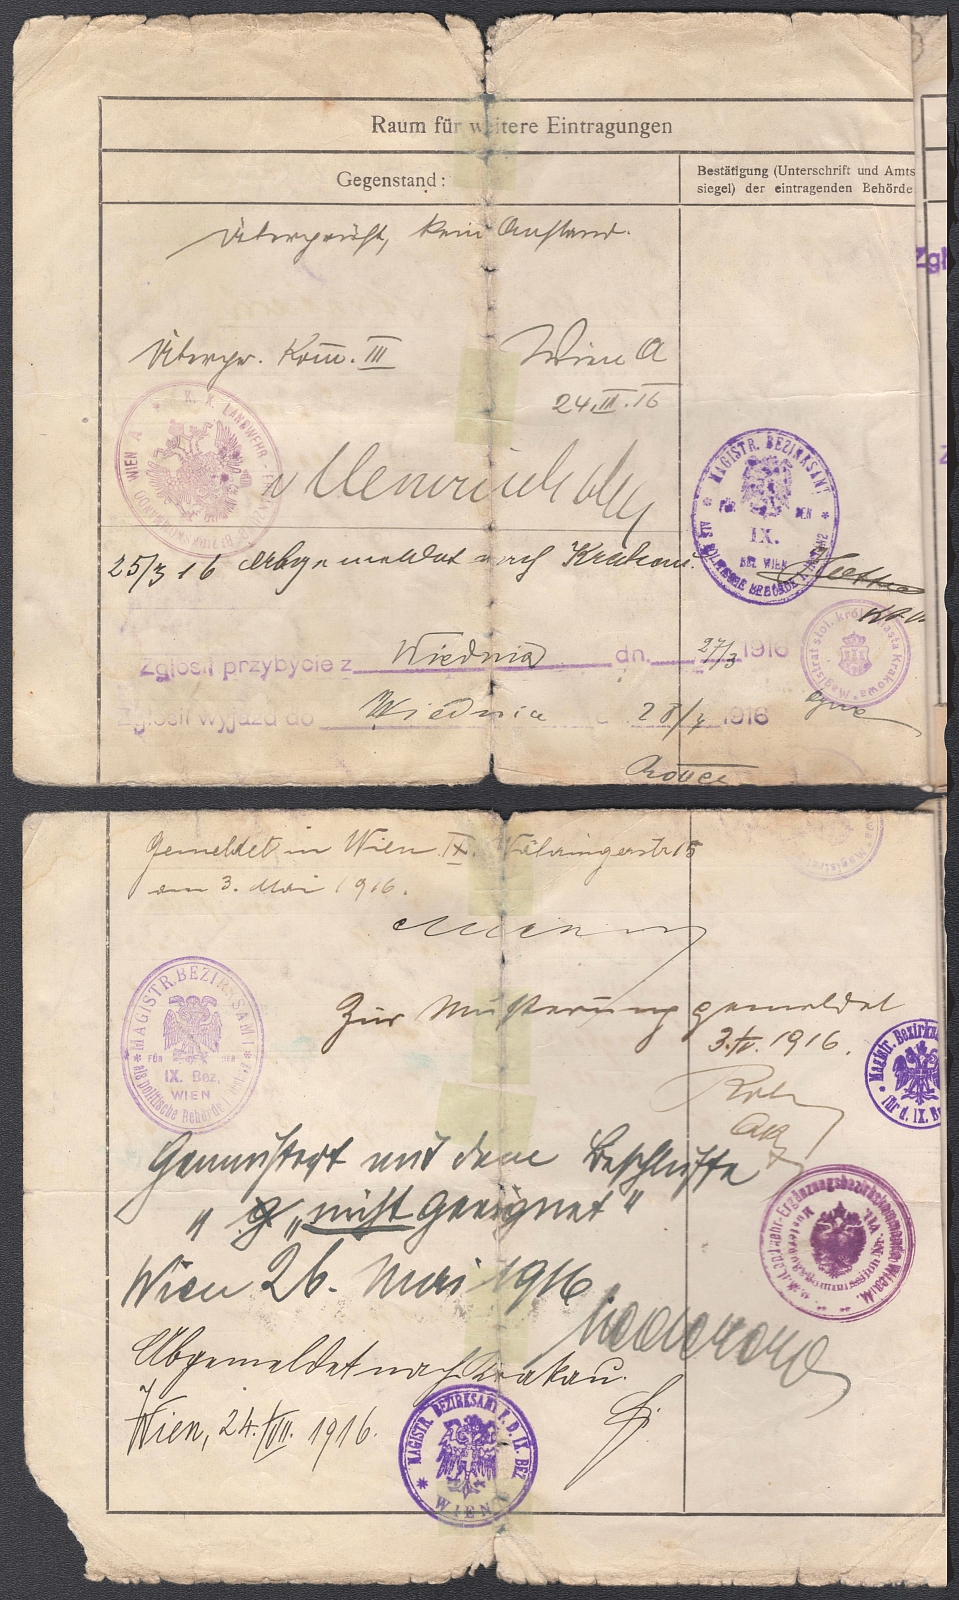 Raum für weitere Eintragungen
Gegenstand:
Bestätigung (Unterschrift und Amts
siegel) der eintragenden Behörde
Überprüft, kein Anstand.
Zgł
Überpr. Kom. III Wien A
24.III.16
K. K. LANDWEHR WIEN A
MAGISTR. BEZIRKSAMT
FÜR DEN
IX.
BEZ. WIEN
ALS POLITISCHE BEHÖRDE I. INSTANZ
25/3 16 Abgemeldet nach Krakau.
Zgłosił przybycie z Wiednia dn. 27/3 1916
Magistrat stoł. król. miasta Krakowa
Zgłosił wyjazd do Wiednia 1916
Gemeldet in Wien IX. Währingerstr 15
am 3. Mai 1916.
MAGISTR. BEZIRKSAMT
FÜR DEN
IX. Bez.
WIEN
als politische Behörde I. Inst.
Zur Musterung gemeldet
3.IV. 1916.
Magistr. Bezirks
für d. IX. Be
Gemustert mit dem Beschlusse
„nicht geeignet"
k.k. Landwehr-Ergänzungsbezirkskommando Wien
Musterungskommission Nr. VII.
Wien 26. Mai 1916
Abgemeldet nach Krakau.
Wien, 24./VII. 1916.
MAGISTR. BEZIRKSAMT F. D. IX. BEZ
WIEN